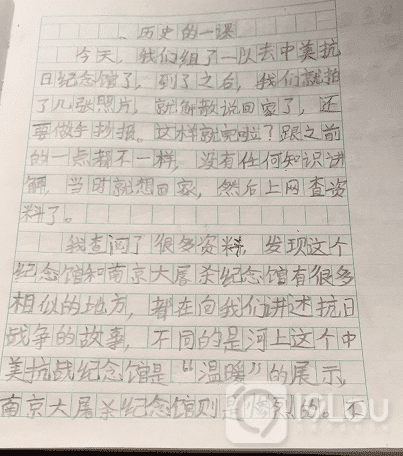 历史的一课
今天，我们组了一队去中美抗
日纪念馆了，到了之后，我们就拍
了几张照片，就解散说回家了，还
要做手抄报。这样就完啦？跟之前
的一点都不一样，没有任何知识讲
解，当时就想回家，然后上网查资
料了。
我查阅了很多资料，发现这个
纪念馆和南京大屠杀纪念馆有很多
相似的地方，都在向我们讲述抗日
战争的故事，不同的是河上这个中
美抗战纪念馆是“温暖”的展示，
南京大屠杀纪念馆则是惨烈的。不